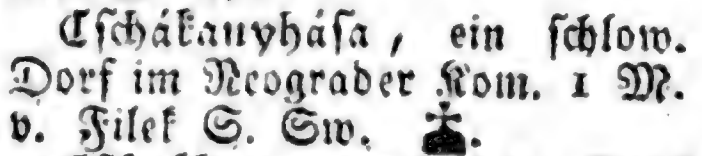 Cſchákanyháſa, ein ſchlow.
Dorf im Neograder Kom. 1 M.
v. Filek S. Sw.